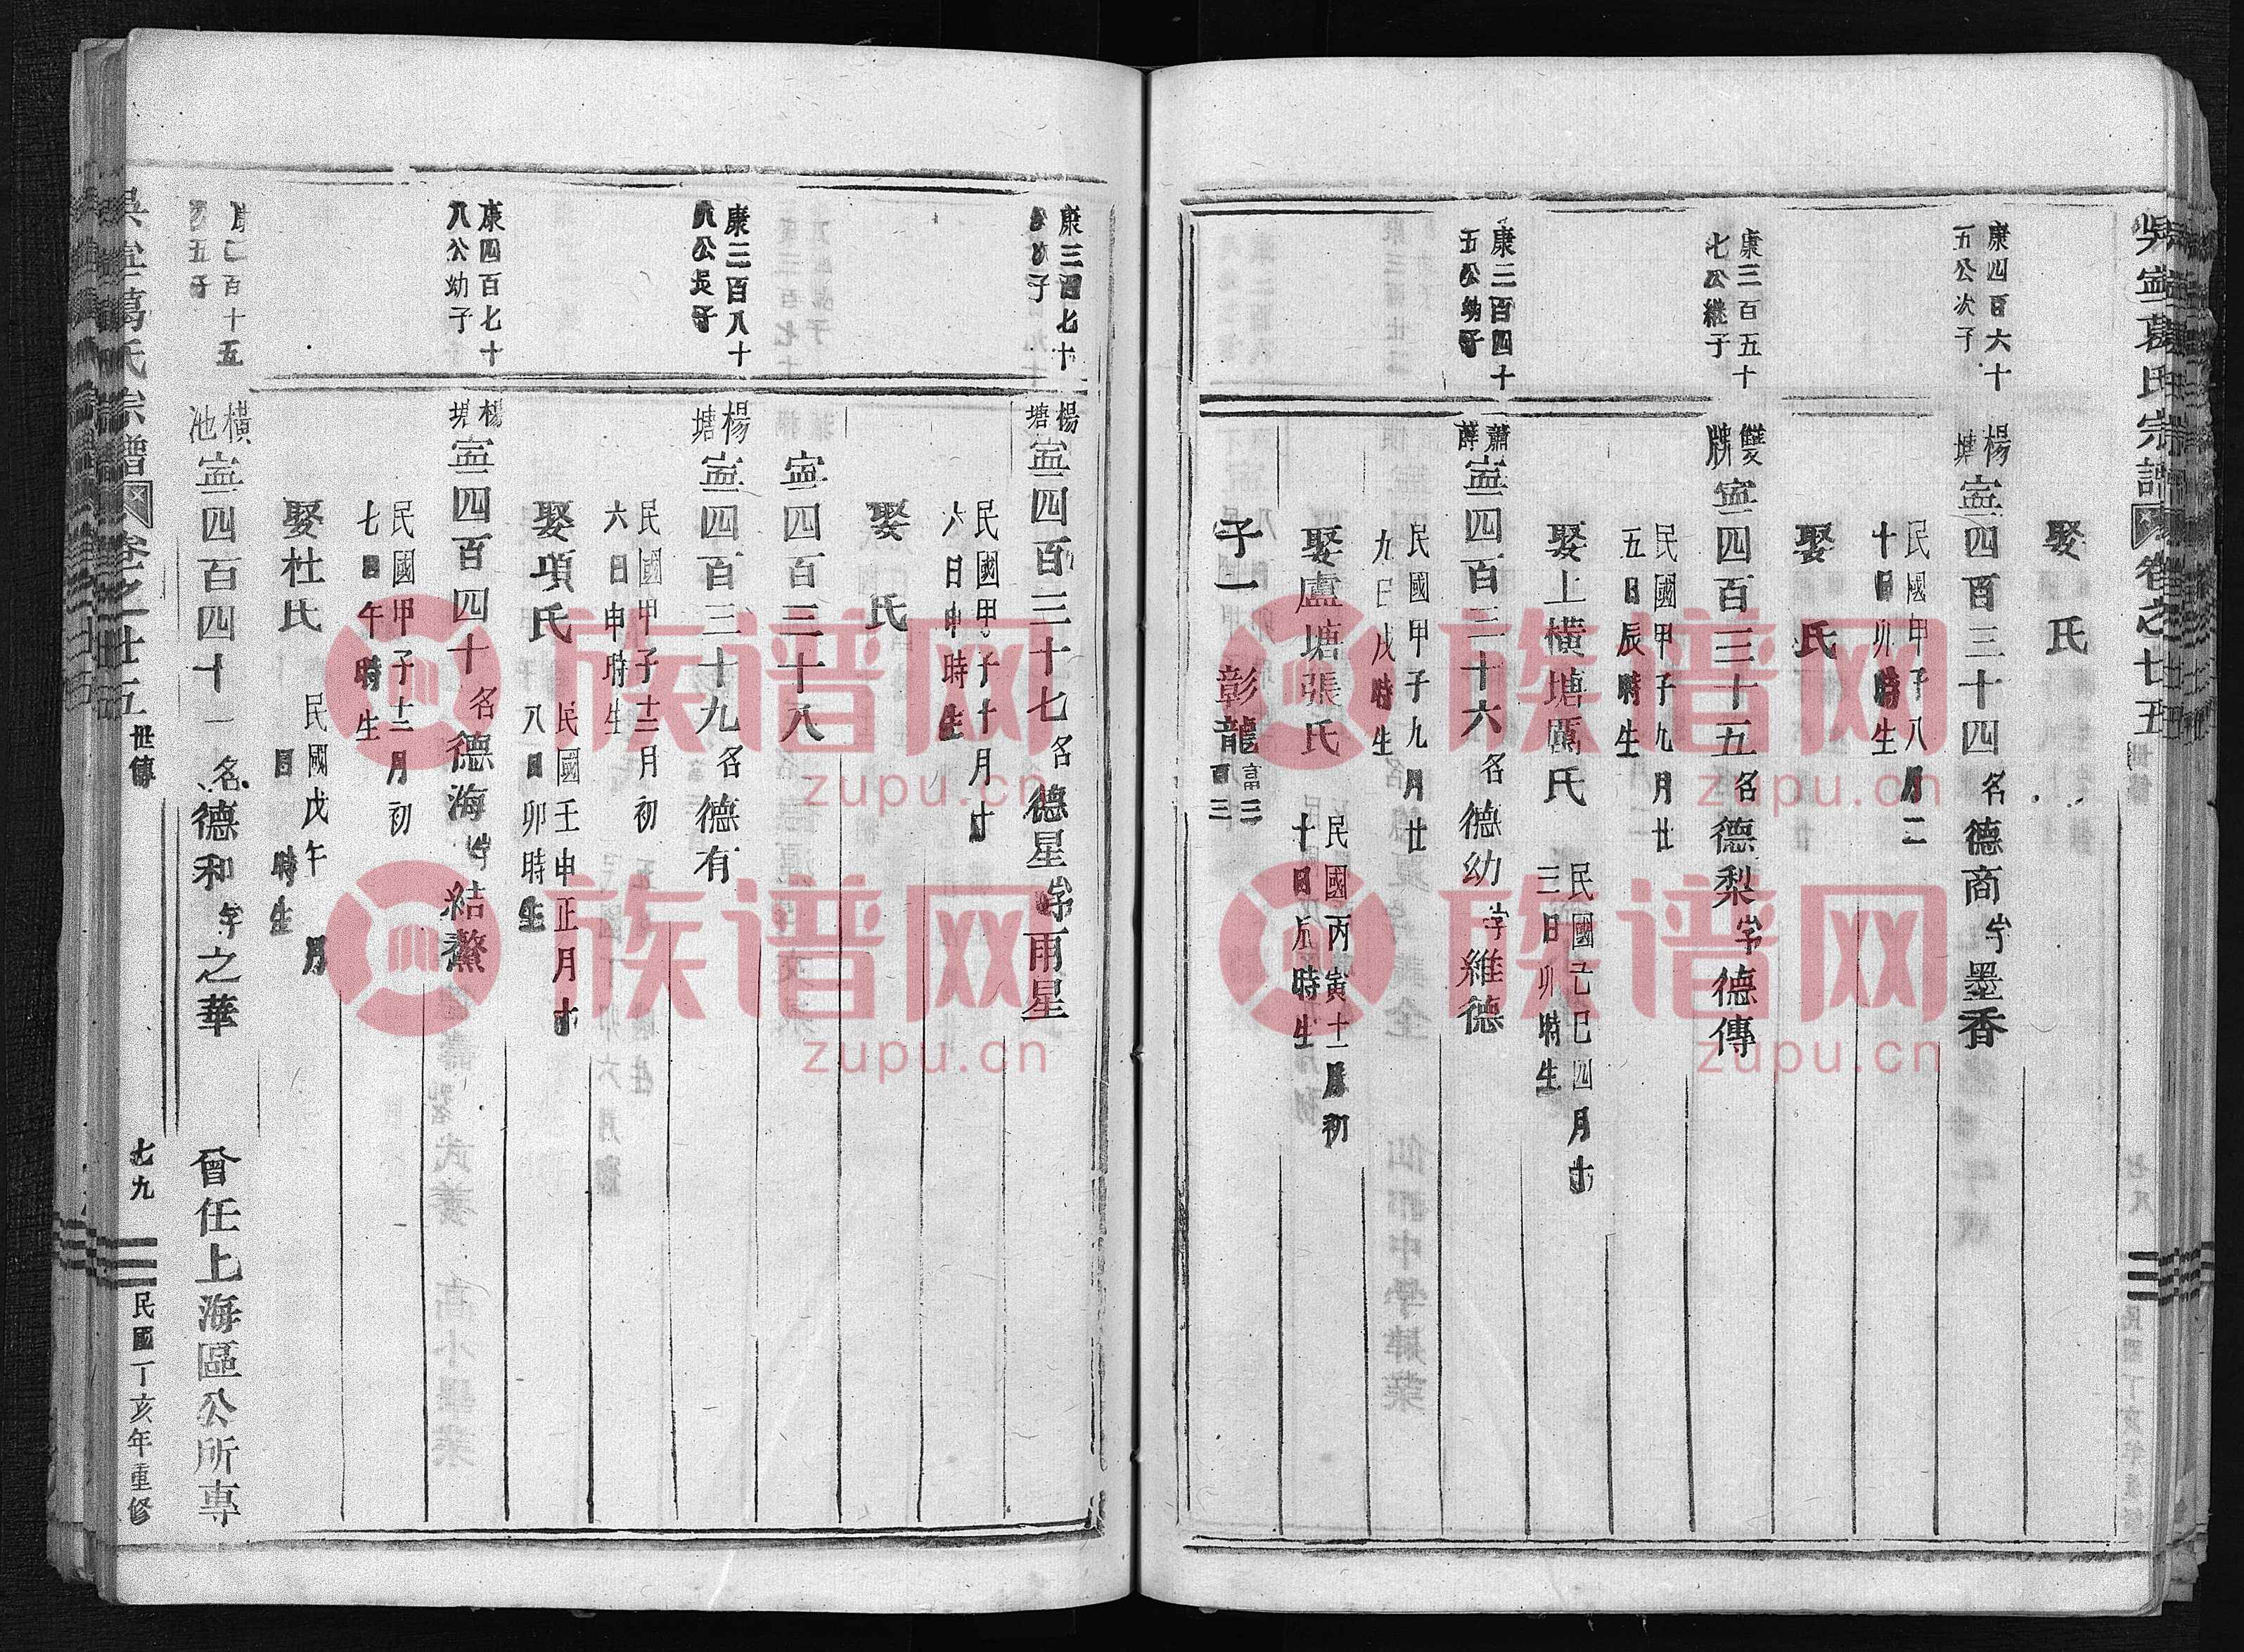 吳寧葛氏宗譜 卷之廿五
娶 氏
康四百六十
五公次子
楊塘 寍四百三十四 名 德商 字 墨香
民國甲子八月二
十日卯時生
娶 氏
康三百五十
七公繼子
雙牌 寍四百三十五 名 德梨 字 德傳
民國甲子九月廿
五日辰時生
娶上橫塘厲氏
民國己巳四月十
三日卯時生
康三百四十
五公幼子
蕭薛 寍四百三十六 名 德幼 字 維德
民國甲子九月廿
九日戌時生
娶盧塘張氏
民國丙寅十二月初
十日辰時生
子一 彰龍 富三百三
康三百七十
次子
楊塘 寍四百三十七 名 德星 字 雨星
民國甲子十月廿
六日申時生
娶 氏
寍四百三十八
康三百八十
八公長子
楊塘 寍四百三十九 名 德有
民國甲子十二月初
六日申時生
娶項氏
民國壬申正月十
八日卯時生
康四百七十
八公幼子
楊塘 寍四百四十 名 德海 字 結鰲
民國甲子十二月初
七日午時生
娶杜氏
民國戊午 月
日 時生
百十五
橫池 寍四百四十一 名 德和 字 之華 曾任上海區公所專
吳寧葛氏宗譜 卷之廿五 世傳 七九 民國丁亥年重修
族谱网
zupu.cn
族谱网
zupu.cn
族谱网
zupu.cn
族谱网
zupu.cn